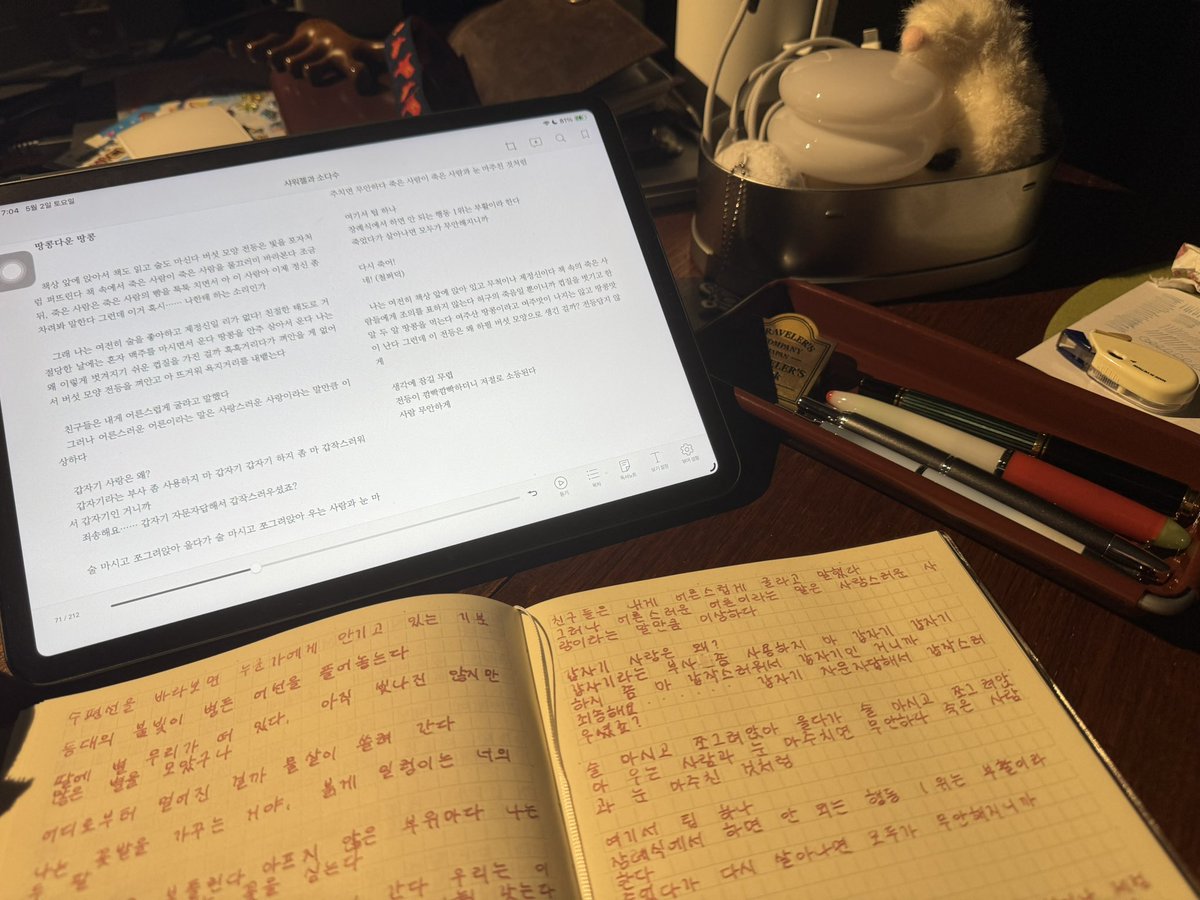 7:04 5월 2일 토요일
81%
샤워젤과 소다수
망콩다운 땅콩
책상 앞에 앉아서 책도 읽고 술도 마신다 버섯 모양 전등은 빛을 포자처
럼 퍼뜨린다 책 속에서 죽은 사람이 죽은 사람을 물끄러미 바라본다 조금
뒤, 죽은 사람은 죽은 사람의 뺨을 툭툭 치면서 아 이 사람아 이제 정신 좀
차려봐 말한다 그런데 이거 혹시…… 나한테 하는 소리인가
그래 나는 여전히 술을 좋아하고 제정신일 리가 없다! 친절한 태도로 거
절당한 날에는 혼자 맥주를 마시면서 운다 땅콩을 안주 삼아서 운다 나는
왜 이렇게 벗겨지기 쉬운 껍질을 가진 걸까 흑흑거리다가 껴안을 게 없어
서 버섯 모양 전등을 껴안고 아 뜨거워 욕지거리를 내뱉는다
친구들은 내게 어른스럽게 굴라고 말했다
그러나 어른스러운 어른이라는 말은 사랑스러운 사랑이라는 말만큼 이
상하다
갑자기 사랑은 왜?
갑자기라는 부사 좀 사용하지 마 갑자기 갑자기 하지 좀 마 갑작스러워
서 갑자기인 거니까
죄송해요…… 갑자기 자문자답해서 갑작스러우셨죠?
술 마시고 쪼그려앉아 울다가 술 마시고 쪼그려앉아 우는 사람과 눈 마
71 / 212
주치면 무안하다 죽은 사람이 죽은 사람과 눈 마주친 것처럼
여기서 팁 하나
장례식에서 하면 안 되는 행동 1위는 부활이라 한다
죽었다가 살아나면 모두가 무안해지니까
다시 죽어!
네! (철퍼덕)
나는 여전히 책상 앞에 앉아 있고 무척이나 제정신이다 책 속의 죽은 사
람들에게 조의를 표하지 않는다 허구의 죽음일 뿐이니까 껍질을 벗기고 한
알 두 알 땅콩을 먹는다 여주산 땅콩이라고 여주맛이 나지는 않고 땅콩맛
이 난다 그런데 이 전등은 왜 하필 버섯 모양으로 생긴 걸까? 전등답지 않
게
생각에 잠길 무렵
전등이 깜빡깜빡하더니 저절로 소등된다
사람 무안하게
듣기
목차
독서노트
보기설정
TRAVELER'S
COMPANY
JAPAN
수평선을 바라보면 누군가에게 안기고 있는 기분
등대의 불빛이 병든 어번을 풀어놓는다
많은 별을 모았구나
어디로부터 멀어진 걸까 물살이 쓸려 간다
나는 꽃밭을 가꾸는 거야. 붉게 일렁이는 너의
두 팔
아프지 않은 부위마다 나는
간다 우리는 이
친구들은 내게 어른스럽게 굴라고 말했다
그러나 어른스러운 어른이라는 말은 사랑스러운 사
랑이라는 말만큼 이상하다
갑자기 사랑은 왜?
갑자기라는 부사 좀 사용하지 마 갑자기 갑자기
하지 좀 마 갑작스러워서 갑자기인 거니까
죄송해요 갑자기 자문자답해서 갑작스러
우셨죠?
술 마시고 쪼그려앉아 울다가 술 마시고 쪼그려앉
아 우는 사람과 눈 마주치면 무안하다 죽은 사람
과 눈 마주친 것처럼
여기서 팁 하나
장례식에서 하면 안 되는 행동 1위는 부활이라
한다
죽었다가 다시 살아나면 모두가 무안해지니까